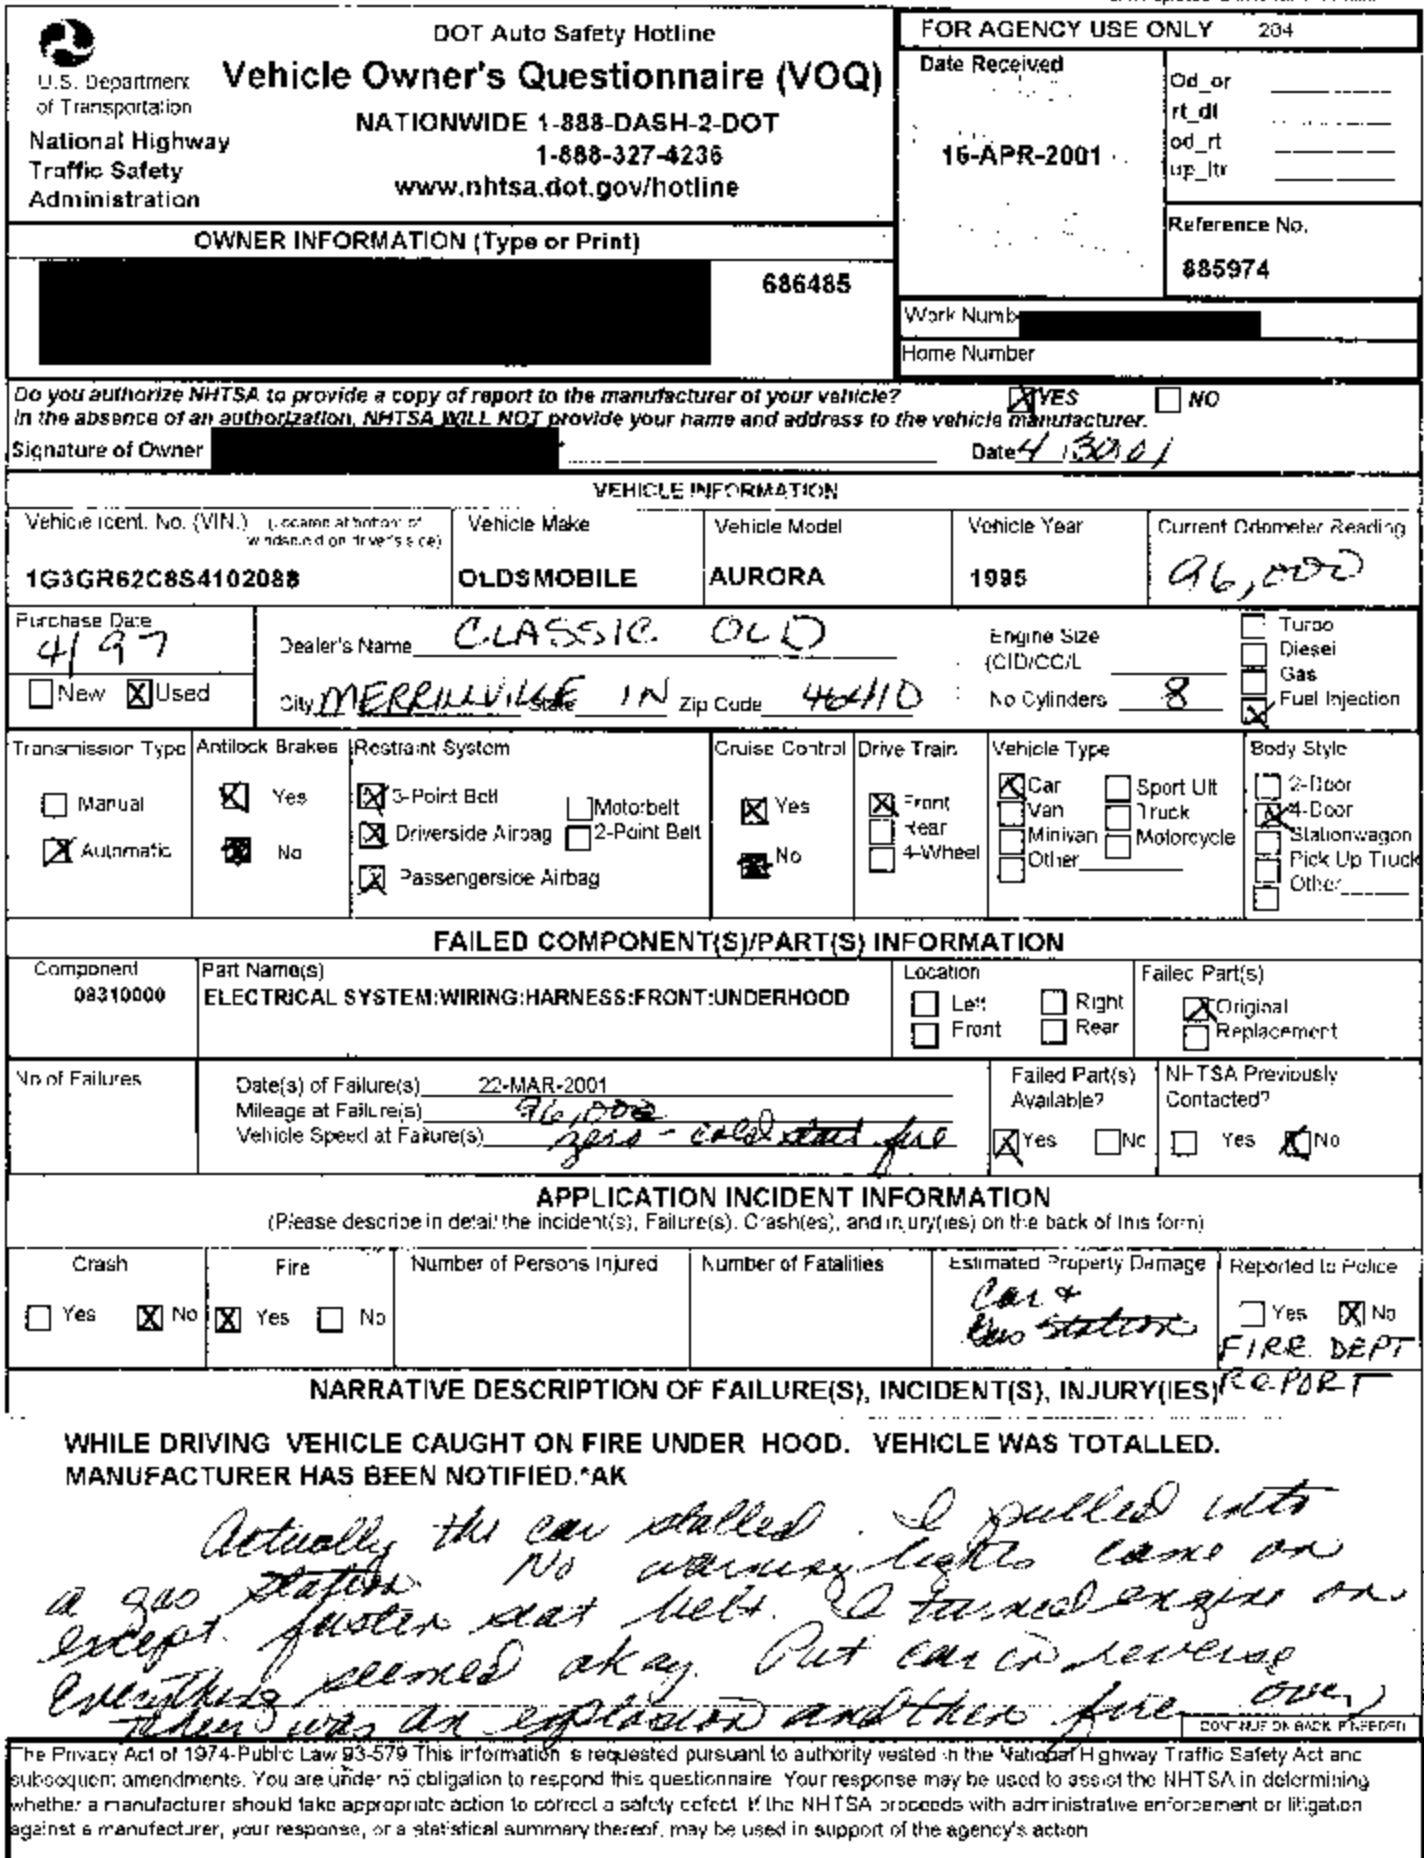 DOT Auto Safety Hotline
Vehicle Owner's Questionnaire (VOQ)
NATIONWIDE 1-888-DASH-2-DOT
1-888-327-4236
www.nhtsa.dot.gov/hotline
U.S. Department
of Transportation
National Highway
Traffic Safety
Administration
FOR AGENCY USE ONLY 204
Date Received
16-APR-2001
Od_or
rt_dt
od_rt
up_ltr
Reference No.
885974
OWNER INFORMATION (Type or Print)
686485
Work Numb
Home Number
Do you authorize NHTSA to provide a copy of report to the manufacturer of your vehicle? YES NO
In the absence of an authorization, NHTSA WILL NOT provide your name and address to the vehicle manufacturer.
Signature of Owner Date 4/30/01
VEHICLE INFORMATION
Vehicle Ident. No. (VIN.) (Located at bottom of
windshield on driver's side)
1G3GR62C8S4102088
Vehicle Make
OLDSMOBILE
Vehicle Model
AURORA
Vehicle Year
1995
Current Odometer Reading
96,000
Purchase Date
4/97
New Used
Dealer's Name CLASSIC OLD
City MERRILLVILLE State IN Zip Code 46410
Engine Size
(CID/CC/L
No Cylinders 8
Turbo
Diesel
Gas
Fuel Injection
Transmission Type
Manual
Automatic
Antilock Brakes
Yes
No
Restraint System
3-Point Belt
Driverside Airbag
Passengerside Airbag
Motorbelt
2-Point Belt
Cruise Control
Yes
No
Drive Train
Front
Rear
4-Wheel
Vehicle Type
Car
Van
Minivan
Other
Sport Ult
Truck
Motorcycle
Body Style
2-Door
4-Door
Stationwagon
Pick Up Truck
Other
FAILED COMPONENT(S)/PART(S) INFORMATION
Component
08310000
Part Name(s)
ELECTRICAL SYSTEM:WIRING:HARNESS:FRONT:UNDERHOOD
Location
Left Right
Front Rear
Failed Part(s)
Original
Replacement
No of Failures
Date(s) of Failure(s) 22-MAR-2001
Mileage at Failure(s) 96,000
Vehicle Speed at Failure(s) zero - fire
Failed Part(s)
Available?
Yes No
NHTSA Previously
Contacted?
Yes No
APPLICATION INCIDENT INFORMATION
(Please describe in detail the incident(s), Failure(s), Crash(es), and injury(ies) on the back of this form)
Crash
Yes No
Fire
Yes No
Number of Persons Injured
Number of Fatalities
Estimated Property Damage
Car &
Gas Station
Reported to Police
Yes No
FIRE DEPT
REPORT
NARRATIVE DESCRIPTION OF FAILURE(S), INCIDENT(S), INJURY(IES)
WHILE DRIVING VEHICLE CAUGHT ON FIRE UNDER HOOD. VEHICLE WAS TOTALLED.
MANUFACTURER HAS BEEN NOTIFIED.*AK
Actually the car stalled. I pulled into
a gas station. No warning lights came on
except fasten seat belt. I turned engine on
Everything seemed okay. Put car in reverse
there was an explosion and then fire over
CONTINUE ON BACK IF NEEDED
The Privacy Act of 1974-Public Law 93-579 This information is requested pursuant to authority vested in the National Highway Traffic Safety Act and
subsequent amendments. You are under no obligation to respond this questionnaire. Your response may be used to assist the NHTSA in determining
whether a manufacturer should take appropriate action to correct a safety defect. If the NHTSA proceeds with administrative enforcement or litigation
against a manufacturer, your response, or a statistical summary thereof, may be used in support of the agency's action